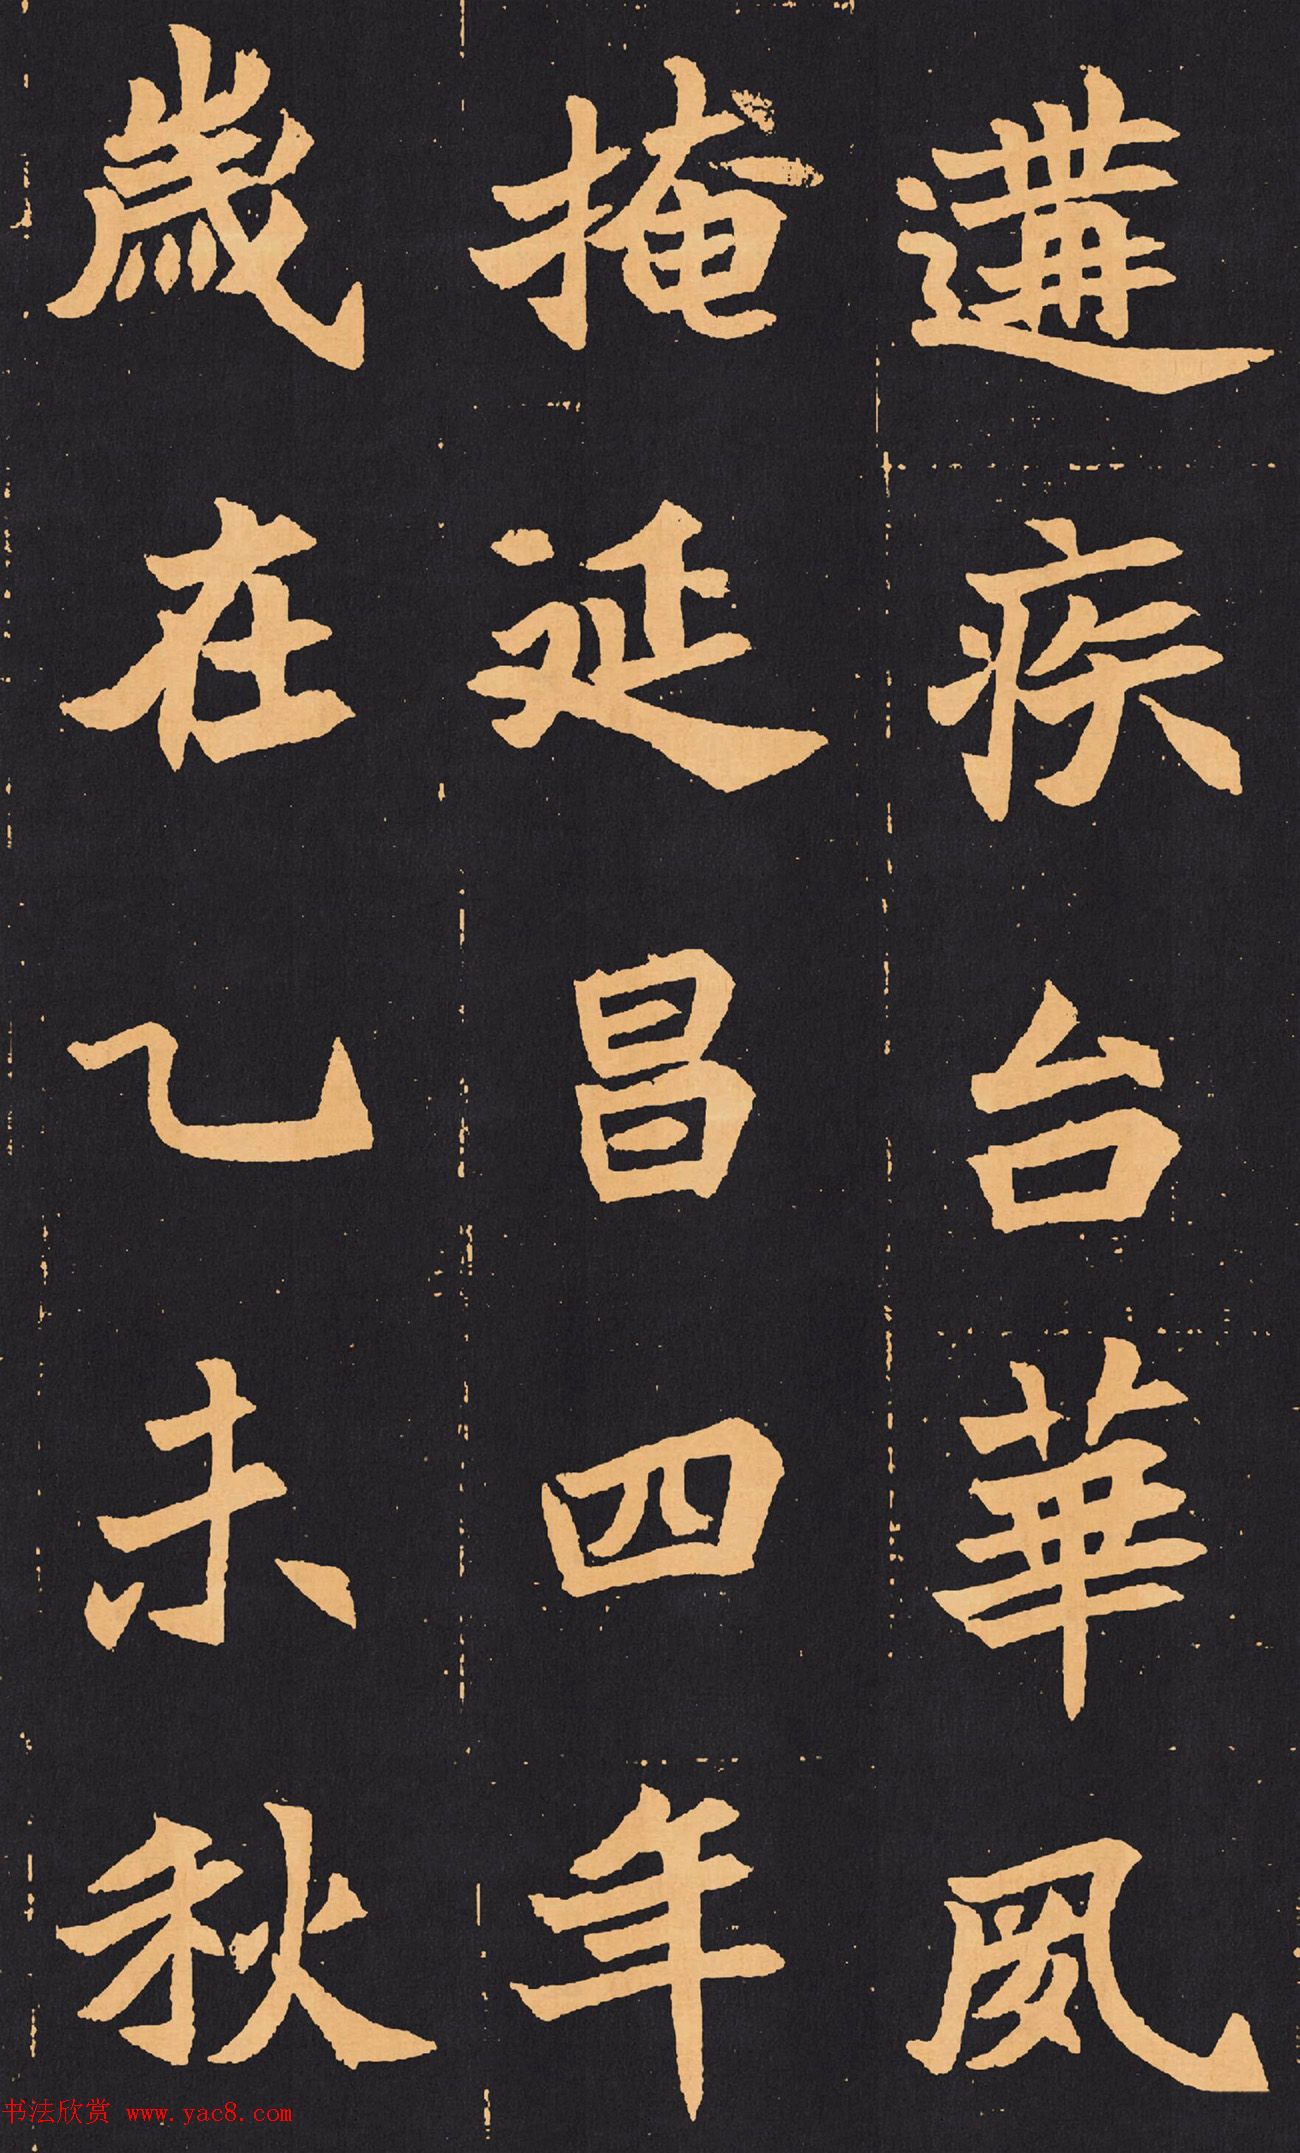 遘疾台華夙
掩延昌四年
歲在乙未秋
书法欣赏 www.yac8.com